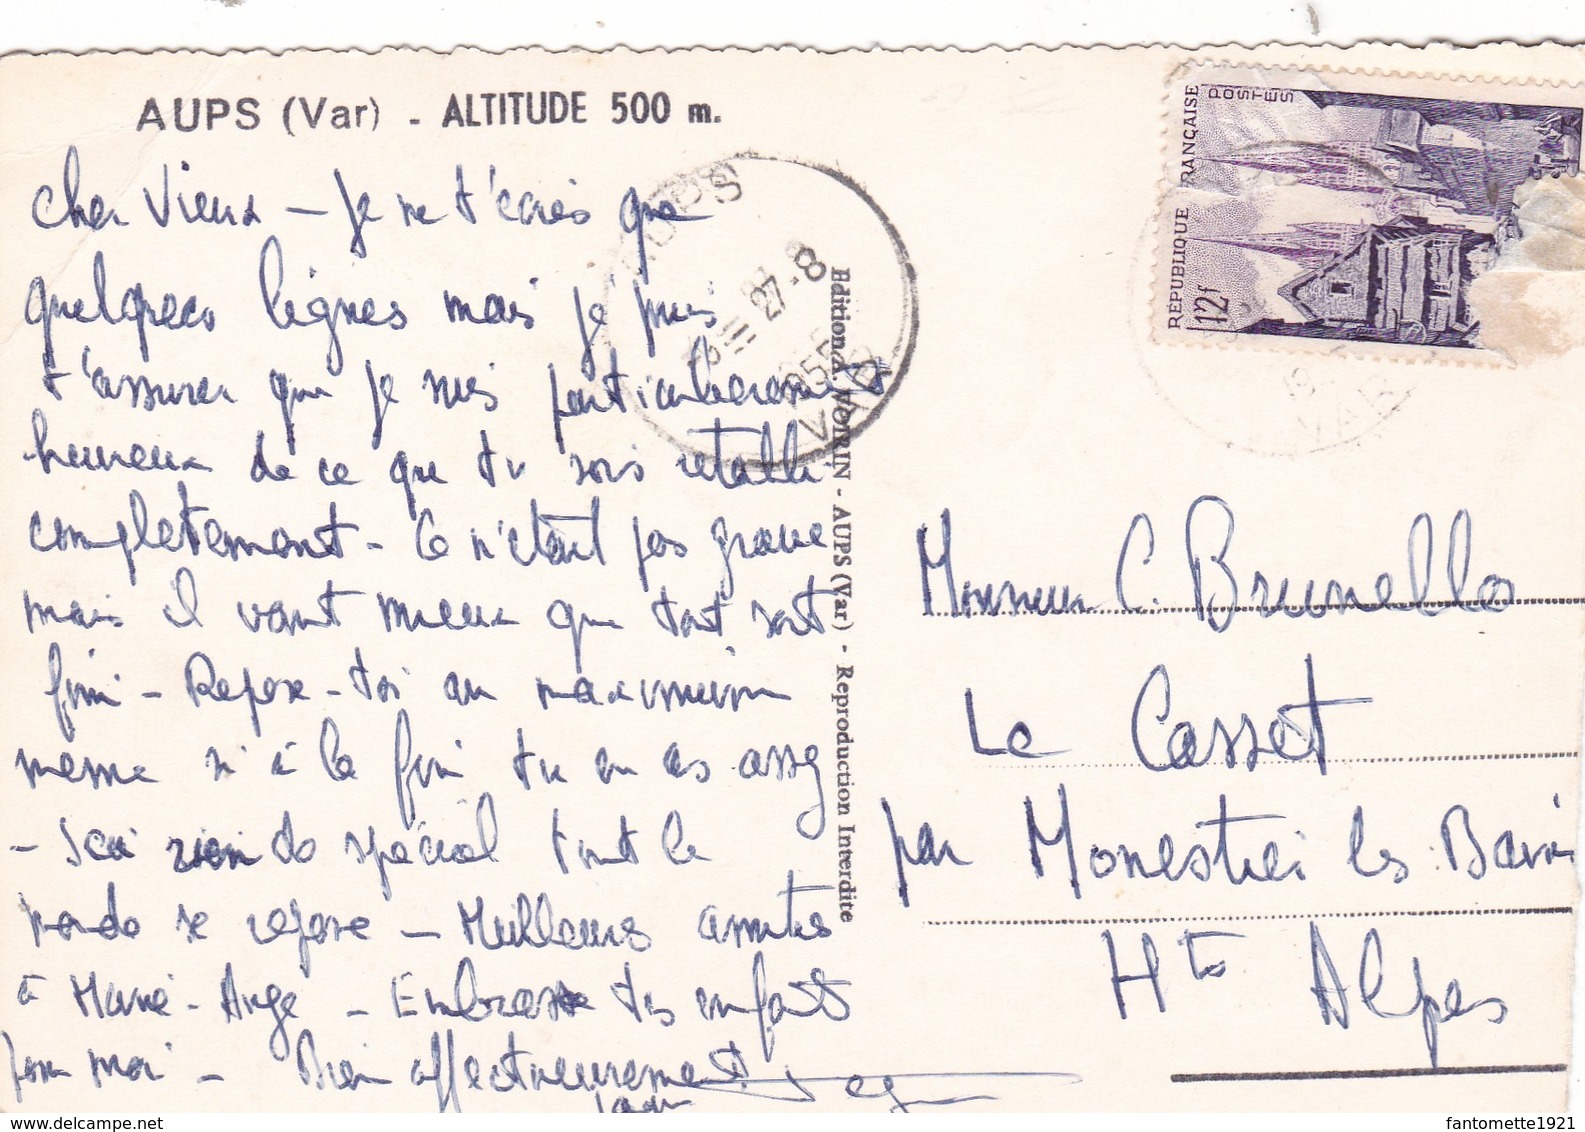 AUPS (Var) - ALTITUDE 500 m.
cher Vieux - Je ne t'écris que
quelques lignes mais je puis
t'assurer que je suis particulièrement
heureux de ce que tu sois rétabli
complètement - Ce n'était pas grave
mais il vaut mieux que tout soit
fini - Repose-toi au maximum
même si à la fin tu en as assez
- Ici rien de spécial tout le
monde se repose - Meilleures amitiés
à Marie-Ange - Embrasse tes enfants
pour moi - Bien affectueusement
AUPS
27-8
1955
VAR
Edition A. VOIRIN - AUPS (Var) - Reproduction Interdite
REPUBLIQUE FRANÇAISE
POSTES
12f
VAR
Monsieur C. Brunello
Le Casset
par Monestier les Bains
Htes Alpes
fantomette1921